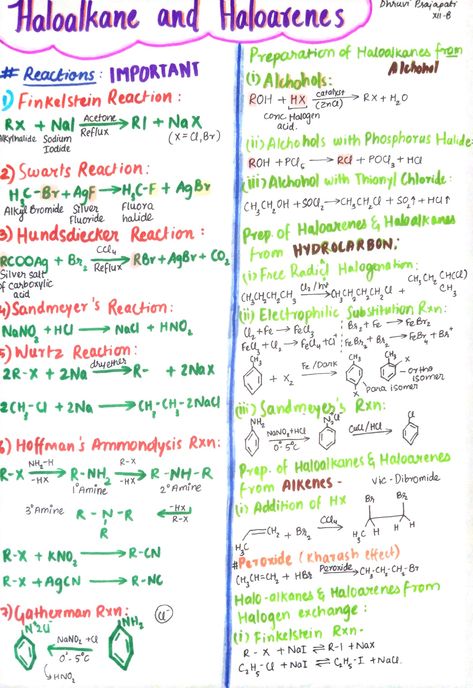 Haloalkane and Haloarenes
Dhruvi Prajapati
XII-B
# Reactions: IMPORTANT
1) Finkelstein Reaction:
RX + NaI Acetone Reflux → RI + NaX
Alkylhalide Sodium Iodide (X = Cl, Br)
2) Swarts Reaction:
H₃C-Br + AgF → H₃C-F + AgBr
Alkyl Bromide Silver Fluoride Fluoro halide
3) Hundsdiecker Reaction:
RCOOAg + Br₂ CCl₄ Reflux → RBr + AgBr + CO₂
Silver salt of carboxylic acid
4) Sandmeyer's Reaction:
NaNO₂ + HCl → NaCl + HNO₂
5) Wurtz Reaction:
2R-X + 2Na dryether → R- + 2NaX
2CH₃-Cl + 2Na → CH₃-CH₃-2NaCl
6) Hoffman's Ammondysis Rxn:
R-X NH₂-H -HX → R-NH₂ R-X -HX → R-NH-R
1° Amine 2° Amine
3° Amine R-N-R ← -HX R-X
R
R-X + KNO₂ → R-CN
R-X + AgCN → R-NC
7) Gatherman Rxn: Cl
N≡Cl NaNO₂ + Cl 0°-5°C NH₂
HNO₂
Preparation of Haloalkanes from Alchohol
(i) Alchohols:
ROH + HX catalyst (ZnCl) → RX + H₂O
conc Halogen acid.
(ii) Alchohols with Phosphorus Halide:
ROH + PCl₅ → RCl + POCl₃ + HCl
(iii) Alchohol with Thionyl Chloride:
CH₃CH₂OH + SOCl₂ → CH₃CH₂Cl + SO₂↑ + HCl↑
Prep. of Haloarenes & Haloalkanes from HYDROCARBON:
(i) Free Radicl Halogenation:
CH₃CH₂CH₂CH₃ Cl₂/hv → CH₃CH₂CH₂CH₂Cl + CH₃CH₂CH(Cl)CH₃
(ii) Electrophilic Substitution Rxn:
Cl₂ + Fe → FeCl₃ Br₂ + Fe → FeBr₂
FeCl₃ + Cl₂ → FeCl₄ + Cl⁺ FeBr₃ + Br₂ → FeBr₄ + Br⁺
CH₃ + X₂ Fe/Dark → CH₃ X CH₃ X
ortho isomer
para isomer
(iii) Sandmeyer's Rxn:
NH₂ NaNO₂+HCl 0°-5°C → N≡Cl CuCl/HCl → Cl
Prep. of Haloalkanes & Haloarenes from Alkenes - vic-Dibromide
(i) Addition of HX
H₃C CH₂ + Br₂ CCl₄ → H₃C Br Br H
# Peroxide (Kharash effect)
CH₃CH=CH₂ + HBr Peroxide → CH₃-CH₂-CH₂-Br
Halo-alkanes & Haloarenes from
Halogen exchange:
(i) Finkelstein Rxn-
R-X + NaI ⇌ R-I + NaX
C₂H₅-Cl + NaI ⇌ C₂H₅-I + NaCl.